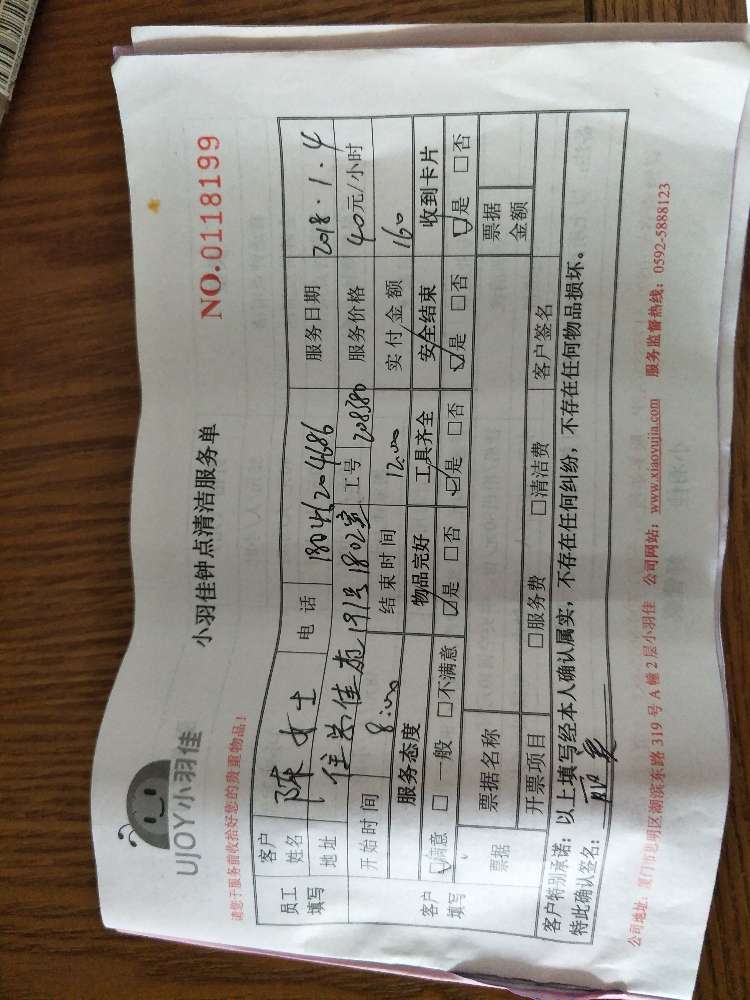 UJOY小羽佳
小羽佳钟点清洁服务单
NO.0118199
请您于服务前收拾好您的贵重物品!
员工填写 客户姓名 陈女士 电话 服务日期 2018.1.4
地址 1802室 工号 208580 服务价格 40元/小时
开始时间 8:00 结束时间 12:00 实付金额 160
客户填写 服务态度 物品完好 工具齐全 安全结束 收到卡片
☑满意 □一般 □不满意 ☑是 □否 ☑是 □否 ☑是 □否 ☑是 □否
票据 票据名称 票据金额
开票项目 □服务费 □清洁费 客户签名
客户特别承诺:以上填写经本人确认属实,不存在任何纠纷,不存在任何物品损坏。
特此确认签名:
公司地址:厦门市思明区湖滨东路319号A幢2层小羽佳 公司网站:www.xiaoyujia.com 服务监督热线:0592-5888123